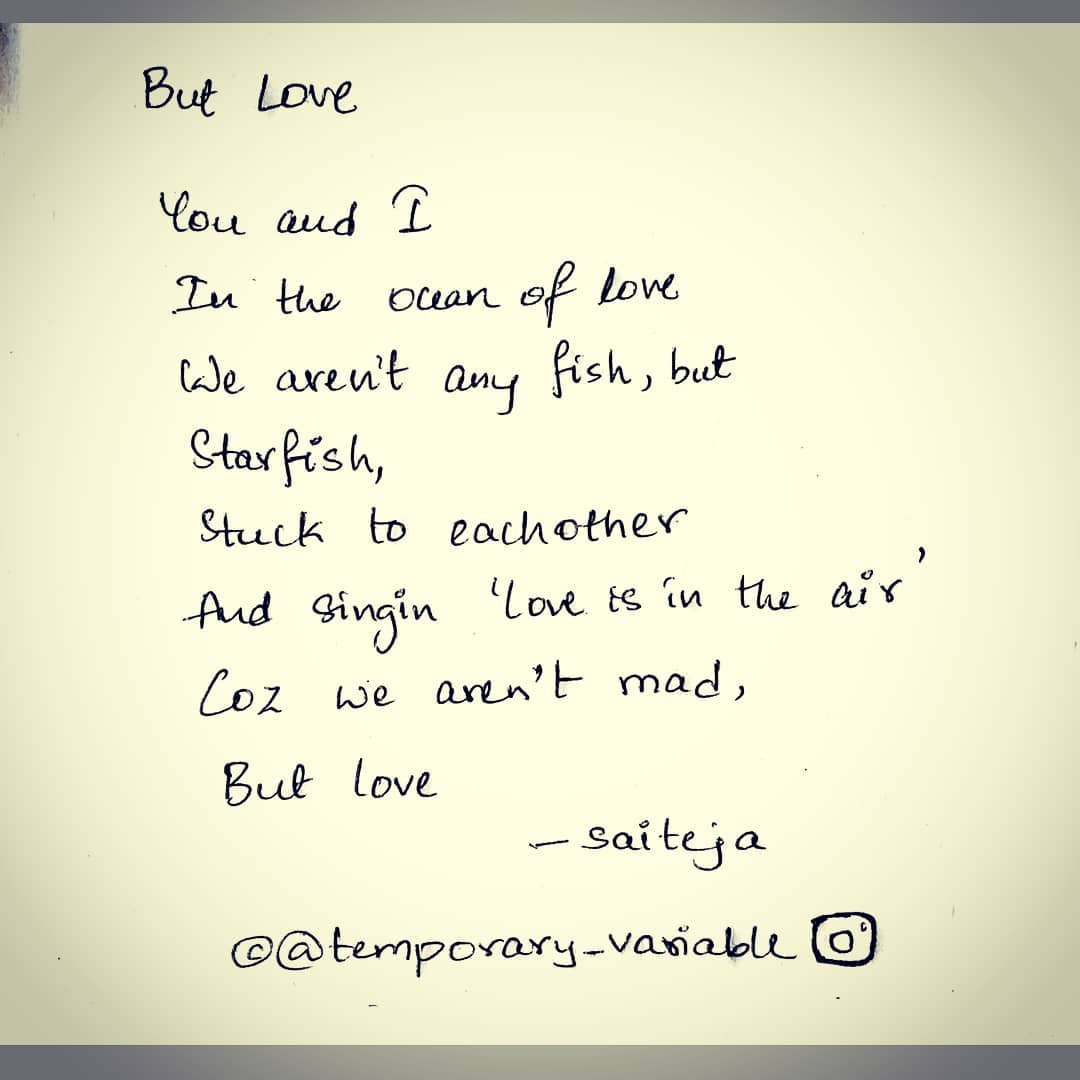 But Love
You and I
In the ocean of love
We aren't any fish, but
Starfish,
Stuck to eachother
And singin 'Love is in the air'
Coz we aren't mad,
But love
- saiteja
©@temporary_variable